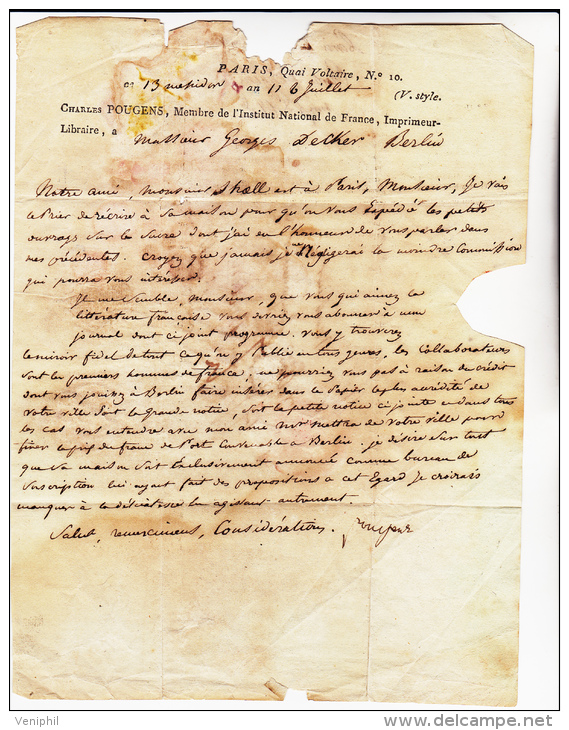 PARIS, Quai Voltaire, N.º 10.
ce 13 messidor an 11 6 Juillet (V. style.
CHARLES POUGENS, Membre de l'Institut National de France, Imprimeur-
Libraire, a Monsieur Georges Decker Berlin
Notre ami, monsieur Shoell est à Paris, Monsieur, Je vais
le prier de récrire à sa maison pour qu'on vous Expédie les petits
ouvrages sur la Suisse dont j'ai eu l'honneur de vous parler dans
mes précédentes. Croyez que jamais je ne négligerai la moindre Commission
qui pourra vous intéresser.
Il me Semble, monsieur, que vous qui aimez la
littérature francaise vous devriez vous abonner à un
journal dont ci joint programme. vous y trouverez
le miroir fidel de tout ce qu'on y Publie en tous genres, les Collaborateurs
sont les premiers hommes de france, ne pourriez vous pas à raison du crédit
dont vous jouissez à Berlin faire insérer dans le Papier le plus accrédité de
Votre ville soit la Grande notice, soit la petite notice ci jointe en dans tous
les cas vous entendre avec mon ami
de Votre ville pour
fixer le prix du franc de Port Convenable à Berlin. je désire sur tout
que sa maison soit Exclusivement annoncée comme bureau de
Souscription lui ayant fait des propositions a cet Egard je croirais
manquer à la délicatesse en agissant autrement.
Salut, remercimens, Considérations. Pougens
Veniphil
delcampe.net